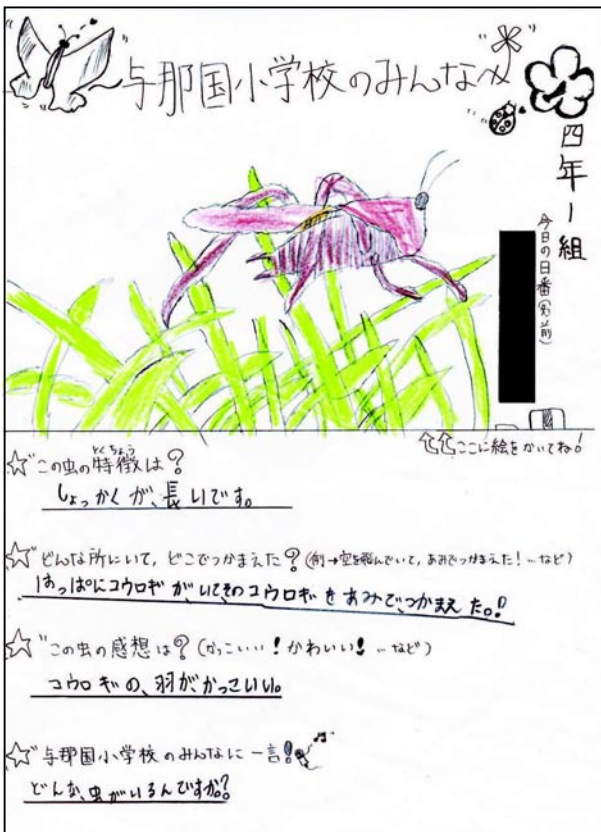 与那国小学校のみんなへ
四年1組
今日の日番(名前)
ここに絵をかいてね!
☆この虫の特徴は?
とくちょう
しょっかくが、長いです。
☆どんな所にいて,どこでつかまえた?(例→空を飛んでいて,あみでつかまえた!…など)
はっぱにコウロギがいてそのコウロギをあみで、つかまえた。!
☆この虫の感想は?(かっこいい!かわいい!…など)
コウロギの、羽が、かっこいい。
☆与那国小学校のみんなに一言!
どんな、虫がいるんですか?